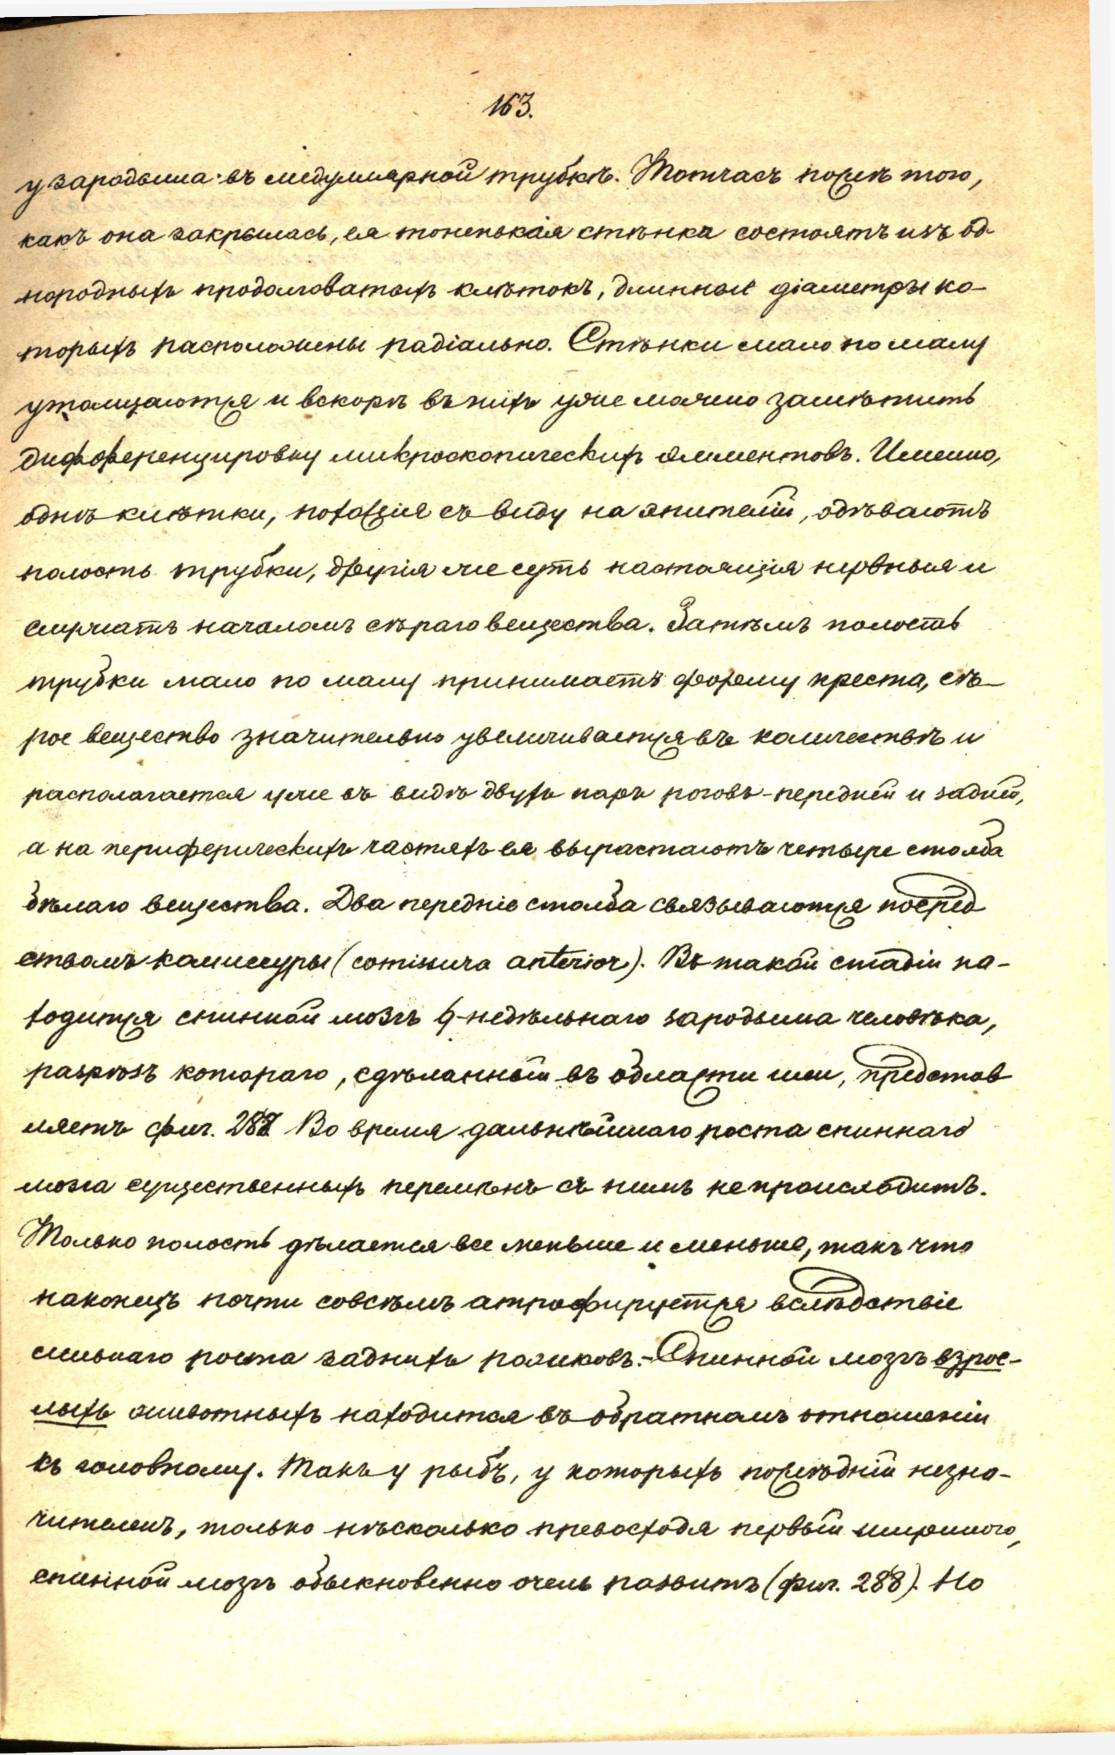 163.
у зародыша въ медуллярной трубкѣ. Тотчасъ послѣ того,
какъ она закрылась, ея тоненькая стѣнка состоятъ изъ од-
нородныхъ продолговатыхъ клѣтокъ, длинные діаметры ко-
торыхъ расположены радіально. Стѣнки мало по малу
утолщаются и вскорѣ въ нихъ уже можно замѣтить
дифференцировку микроскопическихъ элементовъ. Именно,
однѣ клѣтки, похожія съ виду на эпителій, одѣваютъ
полость трубки, другія же суть настоящія нервныя и
служатъ началомъ сѣраго вещества. Затѣмъ полость
трубки мало по малу принимаетъ форму креста, сѣ-
рое вещество значительно увеличивается въ количествѣ и
располагается уже въ видѣ двухъ паръ роговъ-передней и задней,
а на периферическихъ частяхъ ея вырастаютъ четыре столба
бѣлаго вещества. Два передніе столба связываются посред
ствомъ комиссуры (comissura anterior). Въ такой стадіи на-
ходится спинной мозгъ 6-недѣльнаго зародыша человѣка,
разрѣзъ котораго, сдѣланный въ области шеи, представ
ляетъ фиг. 288 Во время дальнѣйшаго роста спиннаго
мозга существенныхъ перемѣнъ съ нимъ не происходитъ.
Только полость дѣлается все меньше и меньше, такъ что
наконецъ почти совсѣмъ атрофируется вслѣдствіе
сильнаго роста заднихъ рожковъ.-Спинной мозгъ взрос-
лыхъ животныхъ находится въ обратномъ отношеніи
къ головному. Такъ у рыбъ, у которыхъ послѣдній незна-
чителенъ, только нѣсколько превосходя первый шириною,
спинной мозгъ обыкновенно очень развитъ (фиг. 288). Но